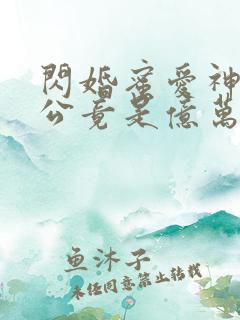 閃婚蜜愛神
公竟是億萬
鱼沐子
未经同意禁止转载